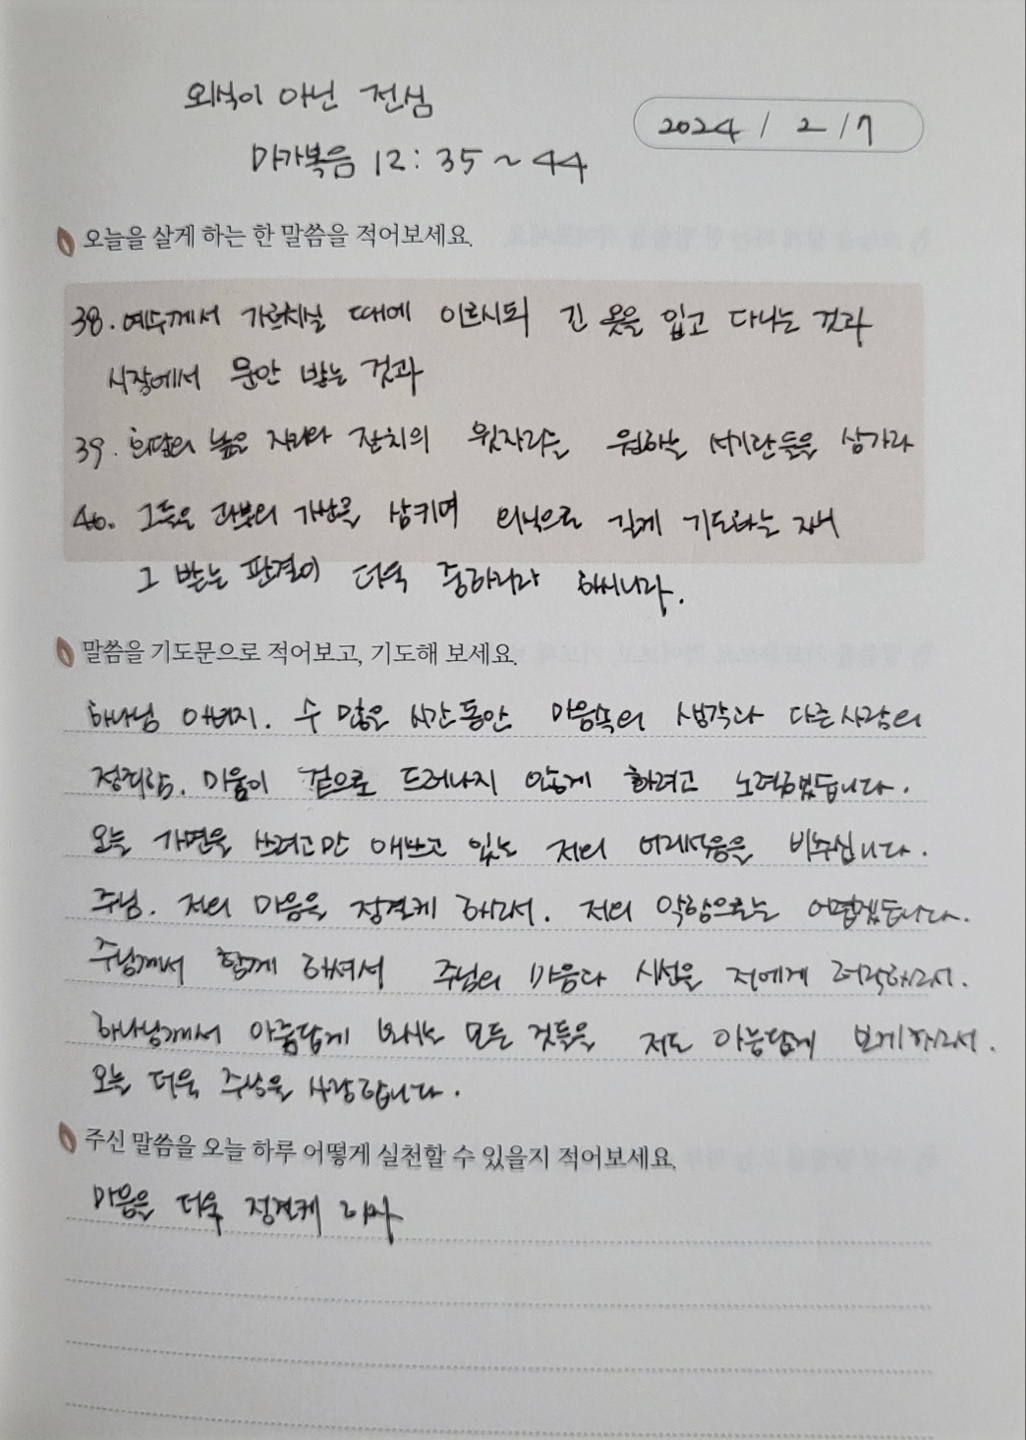 외식이 아닌 전심
2024 / 2 / 7
마가복음 12 : 35 ~ 44
오늘을 살게 하는 한 말씀을 적어보세요.
38. 예수께서 가르치실 때에 이르시되 긴 옷을 입고 다니는 것과
시장에서 문안 받는 것과
39. 회당의 높은 자리와 잔치의 윗자리를 원하는 서기관들을 삼가라
40. 그들은 과부의 가산을 삼키며 외식으로 길게 기도하는 자니
그 받는 판결이 더욱 중하리라 하시니라.
말씀을 기도문으로 적어보고, 기도해 보세요.
하나님 아버지. 수 많은 시간동안 마음속의 생각과 다른사람의
정죄함. 미움이 겉으로 드러나지 않게 하려고 노력했습니다.
오늘 가면을 쓰려고만 애쓰고 있는 저의 어리석음을 비추십니다.
주님. 저의 마음을 정결케 하소서. 저의 악함으로는 어렵겠습니다.
주님께서 함께 하셔서 주님의 마음과 시선을 저에게 허락하소서.
하나님께서 아름답게 보시는 모든 것들을 저도 아름답게 보게하소서.
오늘 더욱 주님을 사랑합니다.
주신 말씀을 오늘 하루 어떻게 실천할 수 있을지 적어보세요.
마음을 더욱 정결케